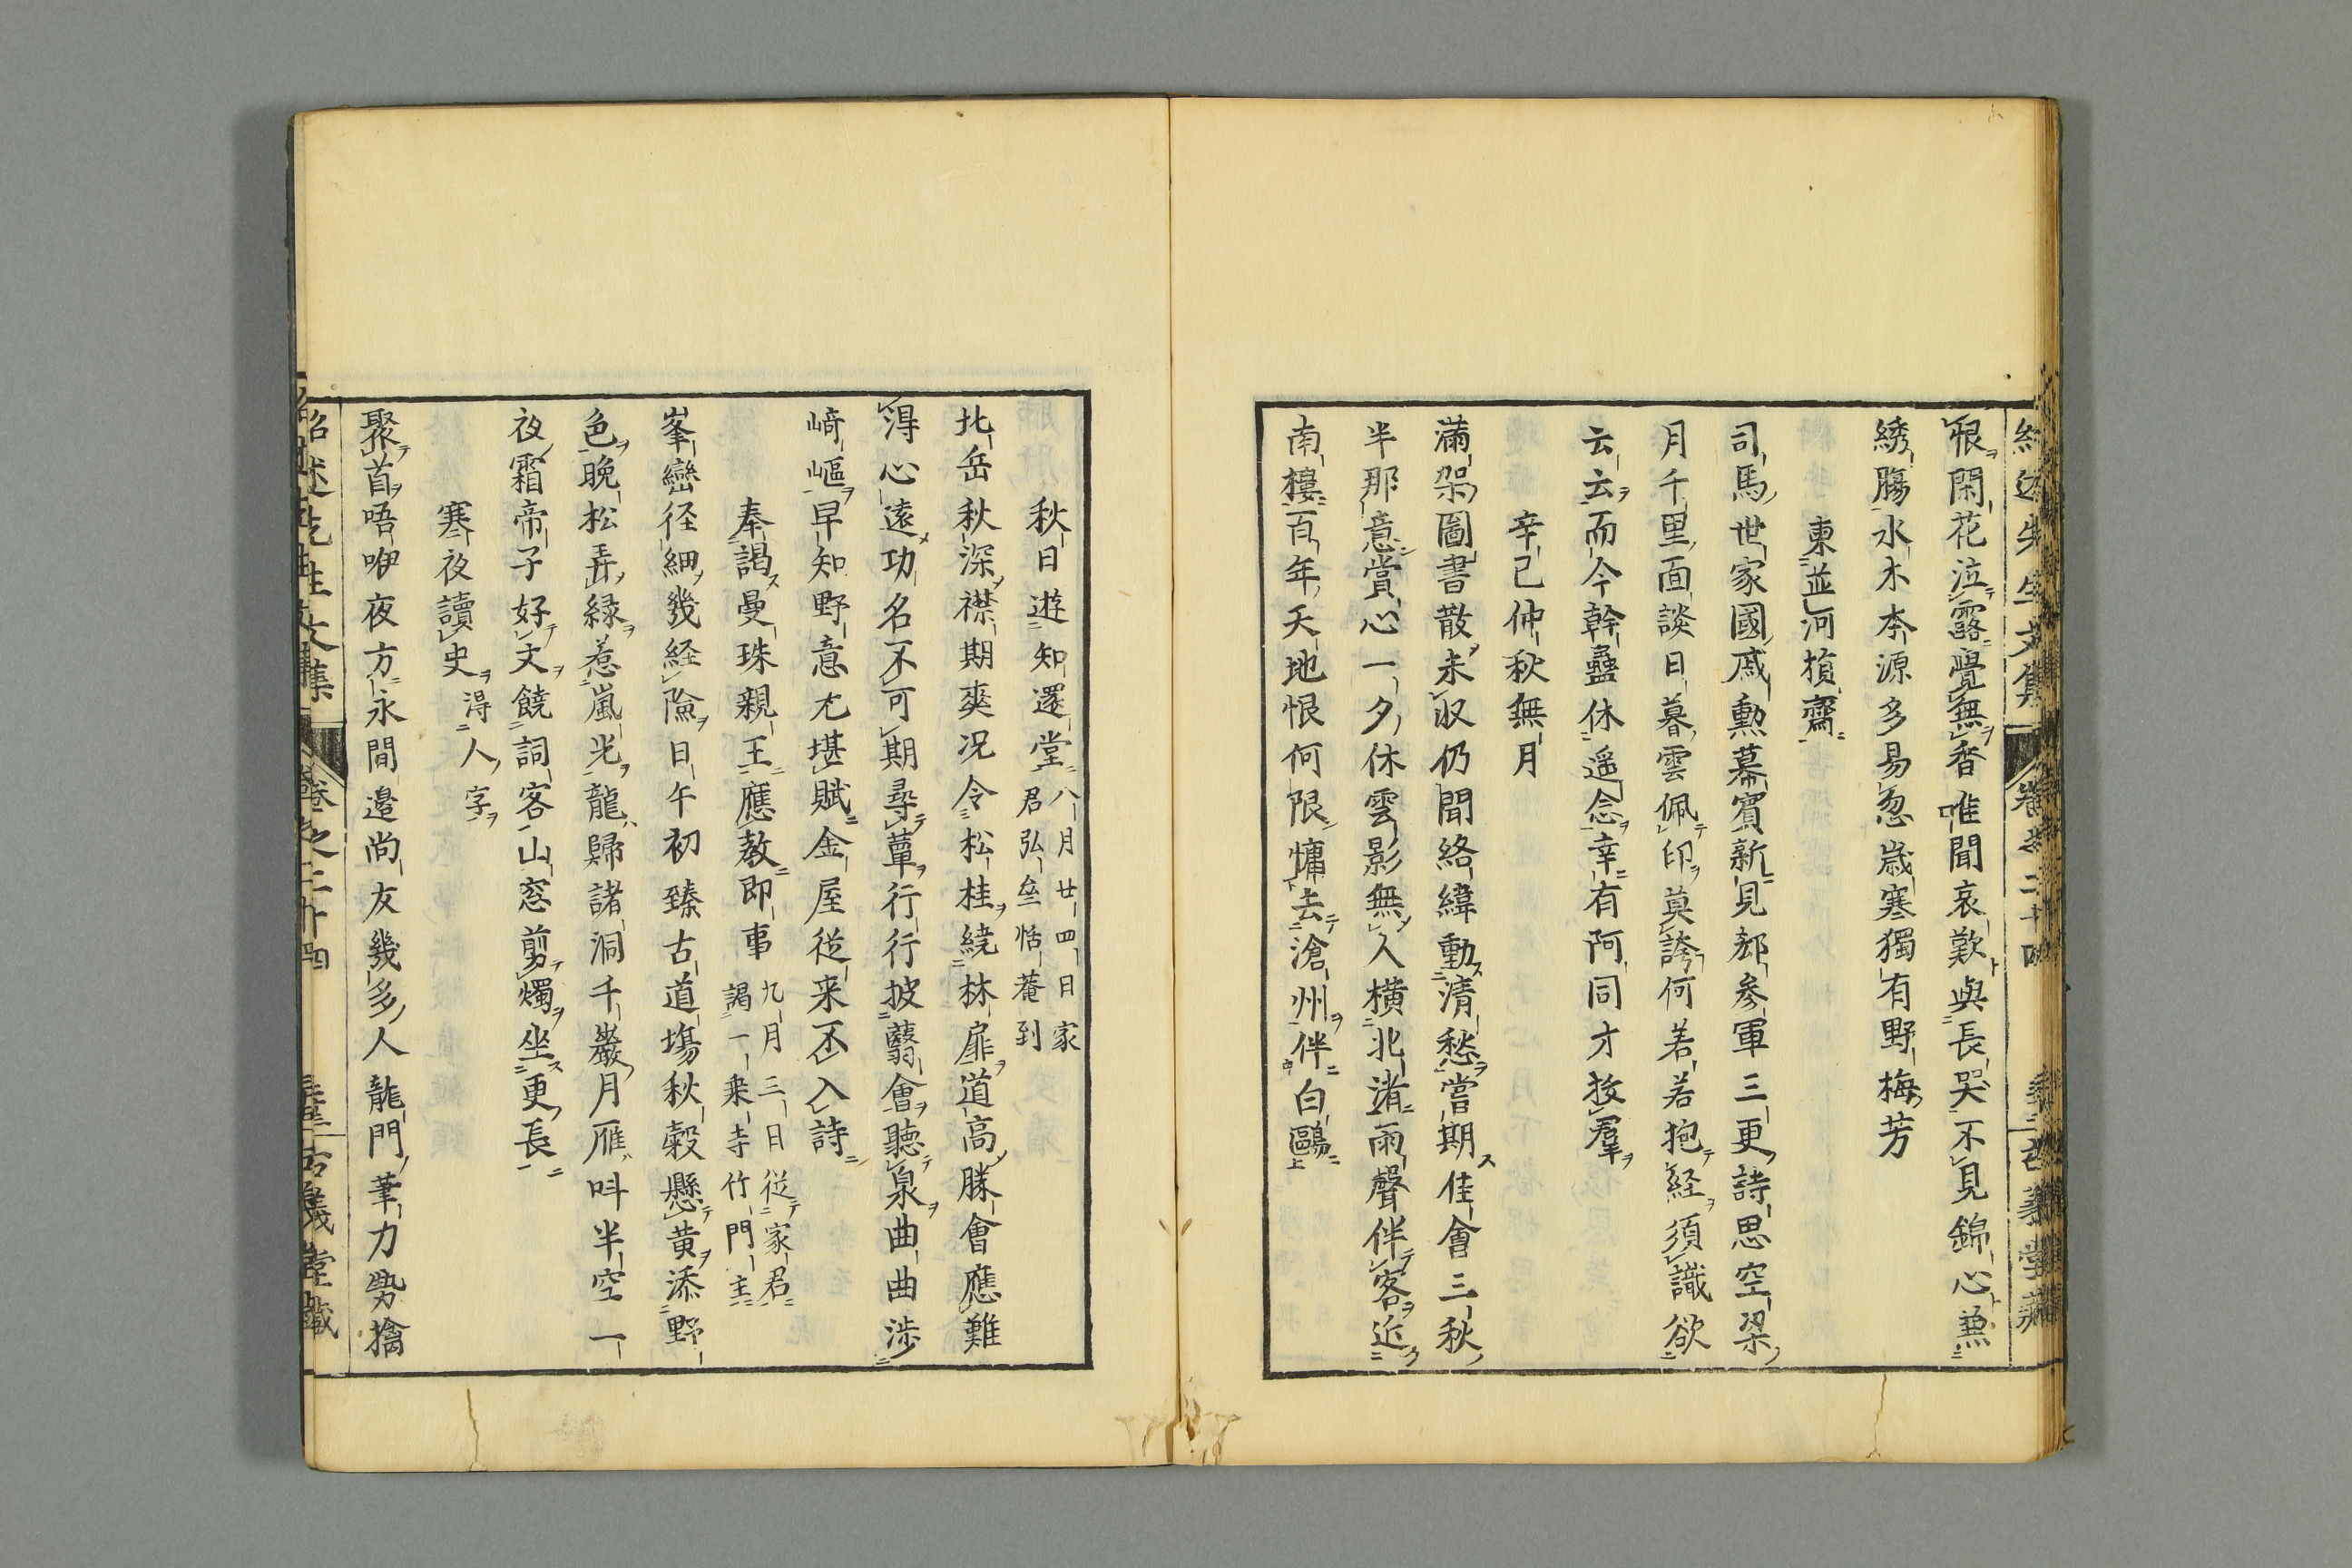 恨閑花泣露覺無香唯聞哀歎與長哭不見錦心兼
綉腸水木本源多易忽歳寒獨有野梅芳
柬並河損齋
司馬世家國戚勲幕賓新見郄參軍三更詩思空梁
月千里面談日暮雲佩印莫誇何若若抱経須識欲
云云而今幹蠱休遥念幸有阿同才抜羣
辛己仲秋無月
滿架圖書散未収仍聞絡緯動清愁嘗期佳會三秋
半那意賞心一夕休雲影無人横北渚雨聲伴客近
南樓百年天地恨何限慵去滄州伴白鷗
秋日遊知還堂
八月廿四日家
君弘叄恬菴到
北岳秋深襟期爽况令松桂繞林扉道高勝會應難
淂心遠功名不可期尋蕈行行披蘙會聽泉曲曲渉
﨑嶇早知野意尤堪賦金屋従来不入詩
奉謁曼珠親王應教即事
九月三日従家君
謁一乗寺竹門主
峯巒径細幾経險日午初臻古道塲秋縠懸黄添野
色晩松弄緑惹嵐光龍歸諸洞千巖月雁呌半空一
夜霜帝子好文饒詞客山窓剪燭坐更長
寒夜讀史
淂人字
聚首唔咿夜方永間邉尚友幾多人龍門筆力勢擒
紹述先生文集
卷之二十四
古義堂藏